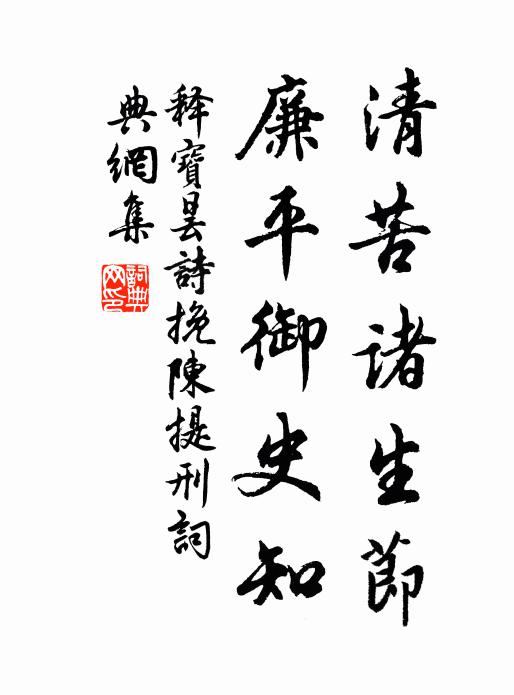 清苦諸生節
廉平御史知
释寶昙詩挽陳提刑詞
典網集
詞典網印